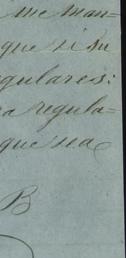 me man-
que si su
gulares:
a regula-
que sea
B